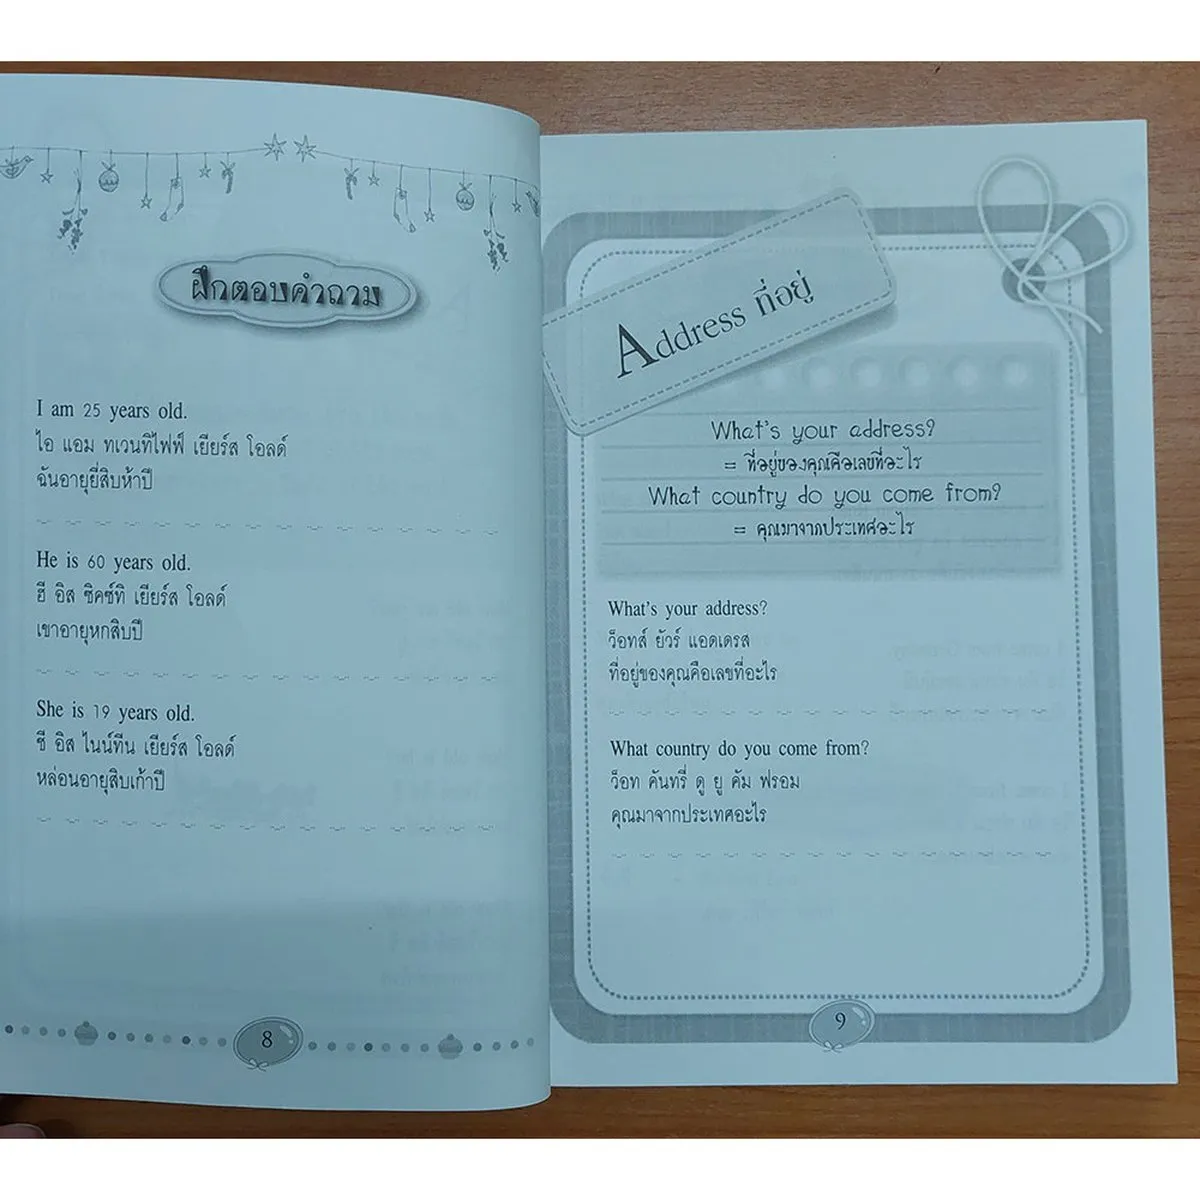 ฝึกตอบคำถาม
I am 25 years old.
ไอ แอม ทเวนทิไฟฟ์ เยียร์ส โอลด์
ฉันอายุยี่สิบห้าปี
He is 60 years old.
ฮี อิส ซิคซ์ทิ เยียร์ส โอลด์
เขาอายุหกสิบปี
She is 19 years old.
ชี อิส ไนน์ทีน เยียร์ส โอลด์
หล่อนอายุสิบเก้าปี
8
Address ที่อยู่
What's your address?
= ที่อยู่ของคุณคือเลขที่อะไร
What country do you come from?
= คุณมาจากประเทศอะไร
What's your address?
ว็อทส์ ยัวร์ แอดเดรส
ที่อยู่ของคุณคือเลขที่อะไร
What country do you come from?
ว็อท คันทรี่ ดู ยู คัม ฟรอม
คุณมาจากประเทศอะไร
9